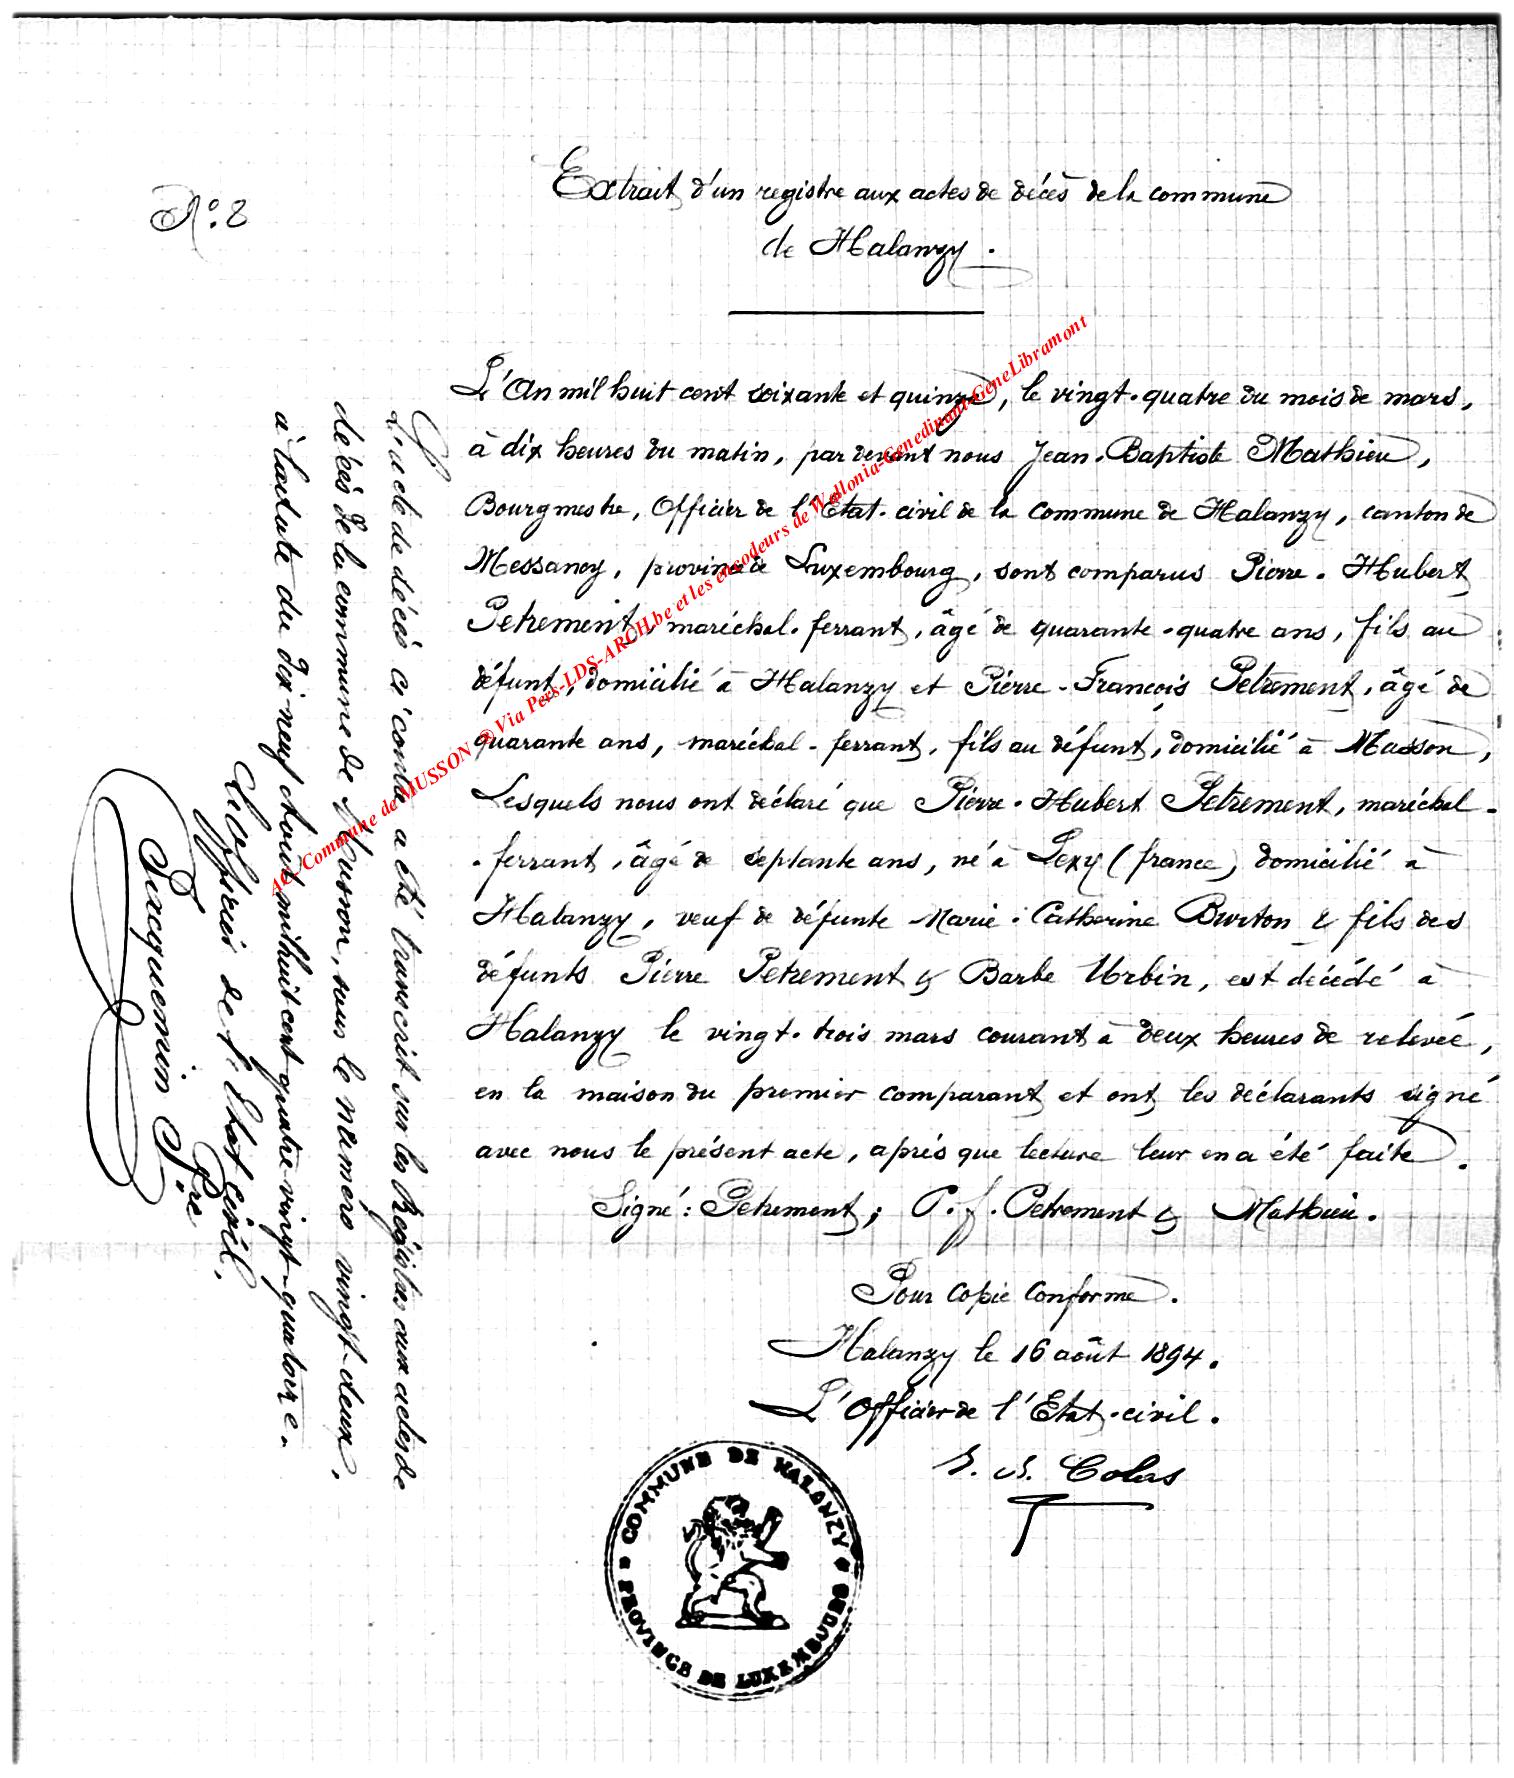 N° 8
Extrait d'un registre aux actes de décès de la commune
de Halanzy.
L'An mil huit cent soixante et quinze, le vingt-quatre du mois de mars,
à dix heures du matin, par devant nous Jean-Baptiste Mathieu,
Bourgmestre, Officier de l'Etat-civil de la commune de Halanzy, canton de
Messancy, province de Luxembourg, sont comparus Pierre-Hubert
Petrement, maréchal-ferrant, âgé de quarante-quatre ans, fils au
défunt, domicilié à Halanzy et Pierre-François Petrement, âgé de
quarante ans, maréchal-ferrant, fils au défunt, domicilié à Musson,
Lesquels nous ont déclaré que Pierre-Hubert Petrement, maréchal-
-ferrant, âgé de septante ans, né à Lexy (france) domicilié à
Halanzy, veuf de défunte Marie-Catherine Burton & fils des
défunts Pierre Petrement & Barbe Urbin, est décédé à
Halanzy le vingt-trois mars courant à deux heures de relevée,
en la maison du premier comparant et ont les déclarants signé
avec nous le présent acte, après que lecture leur en a été faite.
Signé: Petrement; P. f. Petrement & Mathieu.
Pour copie conforme.
Halanzy le 16 août 1894.
L'Officier de l'Etat-civil.
Colas
COMMUNE DE HALANZY
PROVINCE DE LUXEMBOURG
L'acte de décès ci contre a été transcrit sur les Registres aux actes de
décès de la commune de Musson, sous le numéro vingt-deux,
à la date du dix-neuf Août mil huit cent quatre vingt-quatorze.
L'officier de l'Etat civil.
Jacquemin P.re
de Commune de MUSSON @ Via Pers-LDS-ARCH.be et les encodeurs de Wallonia-Genedinant-GeneLibramont